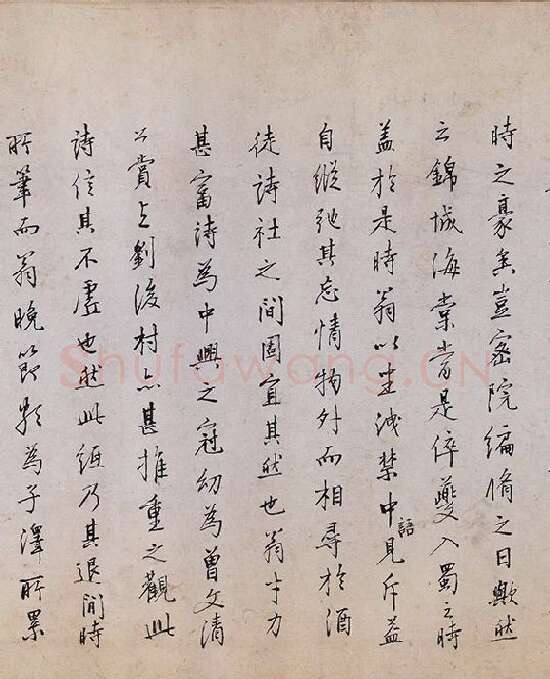 時之豪矣豈密院編脩之日歟然
云錦城海棠當是倅夔入蜀之時
盖於是時翁以坐洩禁中語見斥益
自縱弛其忘情物外而相尋於酒
徒詩社之間固宜其然也翁才力
甚富詩為中興之冠幼為曾文清
公賞上劉後村亦甚推重之觀此
詩信其不虛也然此紙乃其退閒時
所筆而翁晚節頗為子澤所累
Shufawang.CN